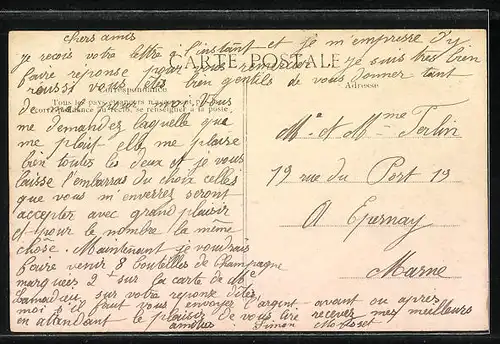 Chers amis
je reçois votre lettre à l'instant et je m'empresse d'y
CARTE POSTALE
faire reponse pour vous remercier je suis tres bien
Correspondance
Adresse
reussi vous êtes bien gentils de vous donner tant
Tous les pays étrangers n'acceptent pas la
de mal
vous
correspondance au recto, se renseigner à la poste.
me demandez laquelle que
me plait elle me plaise
bien toutes les deux et je vous
laisse l'embarras du choix celles
que vous m'enverrez seront
accepter avec grand plaisir
et pour le nombre la meme
chose. Maintenant je voudrais
faire venir 8 bouteilles de Champagne
marquez 2f sur la carte de Mr
sur votre reponse dites
moi s'il faut vous envoyer l'argent avant ou après
en attendant le plaisir de vous lire recevez mes meilleurs
amitiés Simon
Mr et Mme Terlin
19 rue du Port 19
A Epernay
Marne